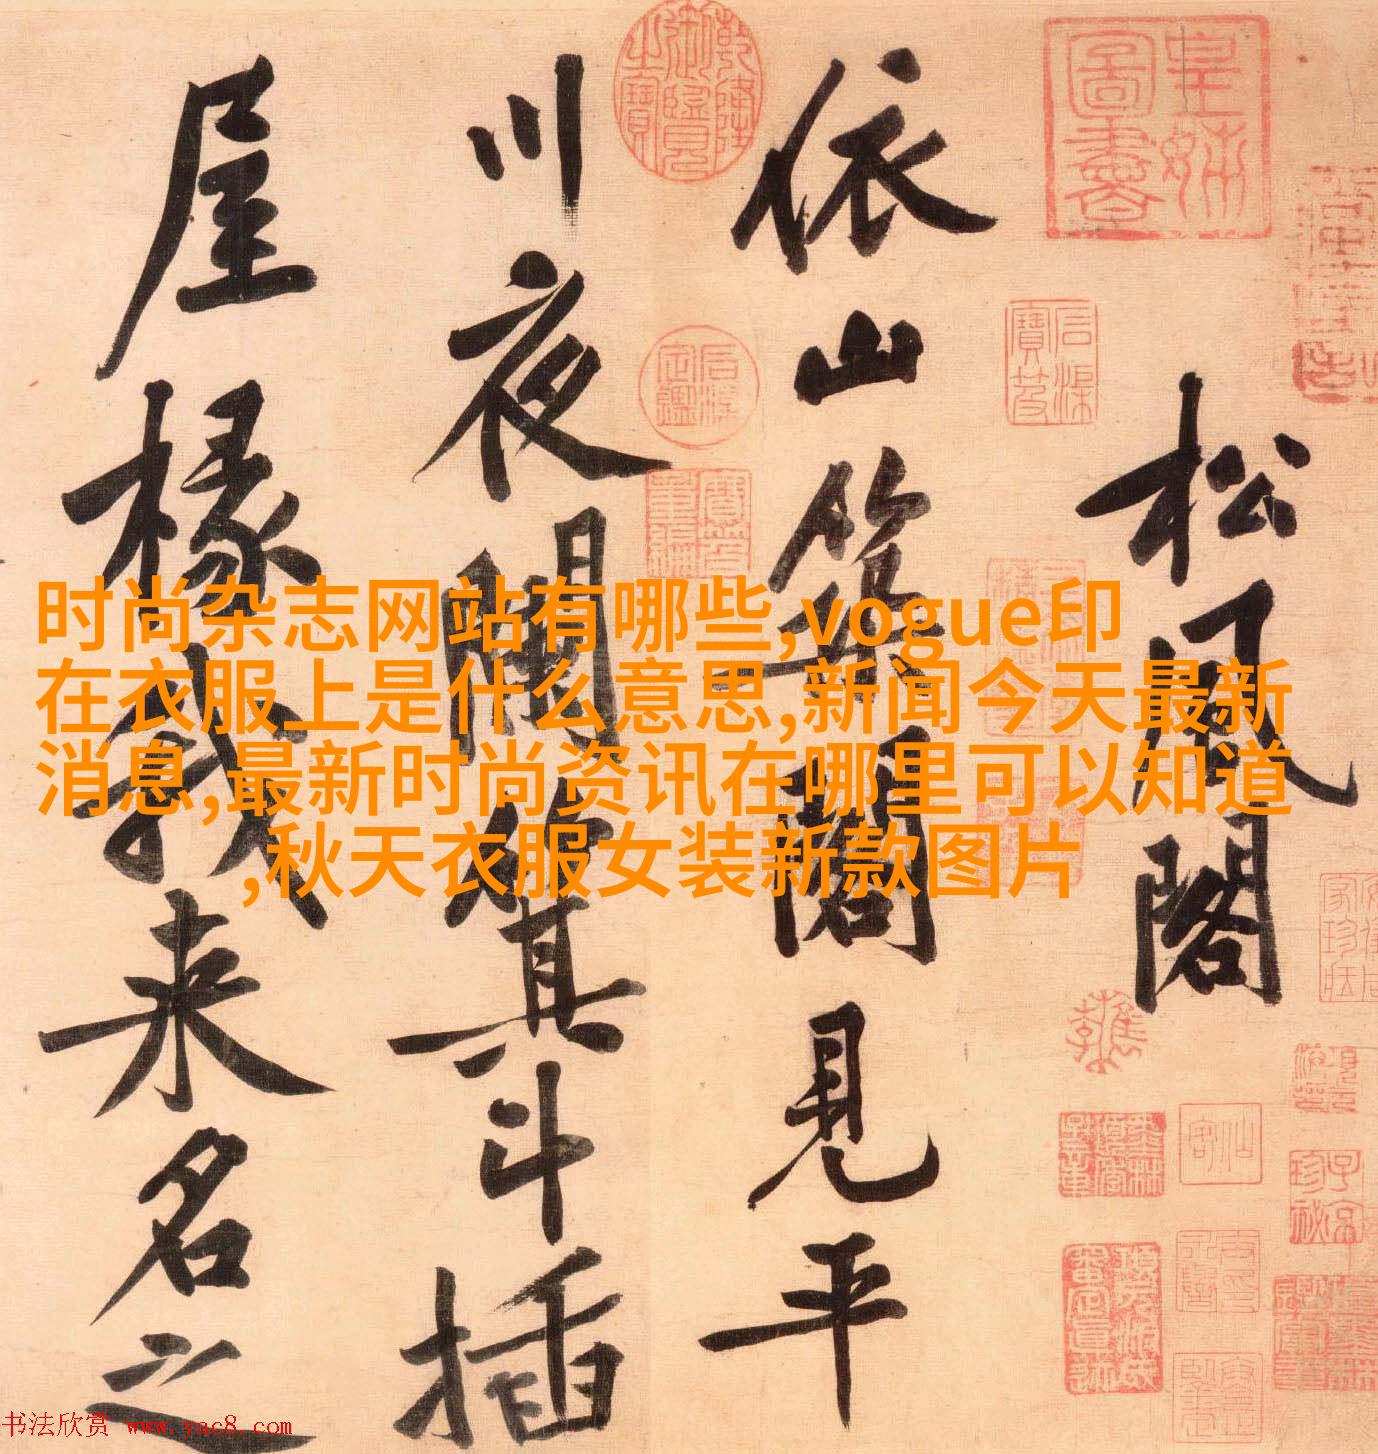 松风阁
依山築閣見平
川夜闌箕斗插
屋椽我来名之
时尚杂志网站有哪些,vogue印
在衣服上是什么意思,新闻今天最新
消息,最新时尚资讯在哪里可以知道
,秋天衣服女装新款图片
书法欣赏 www.yac8.com